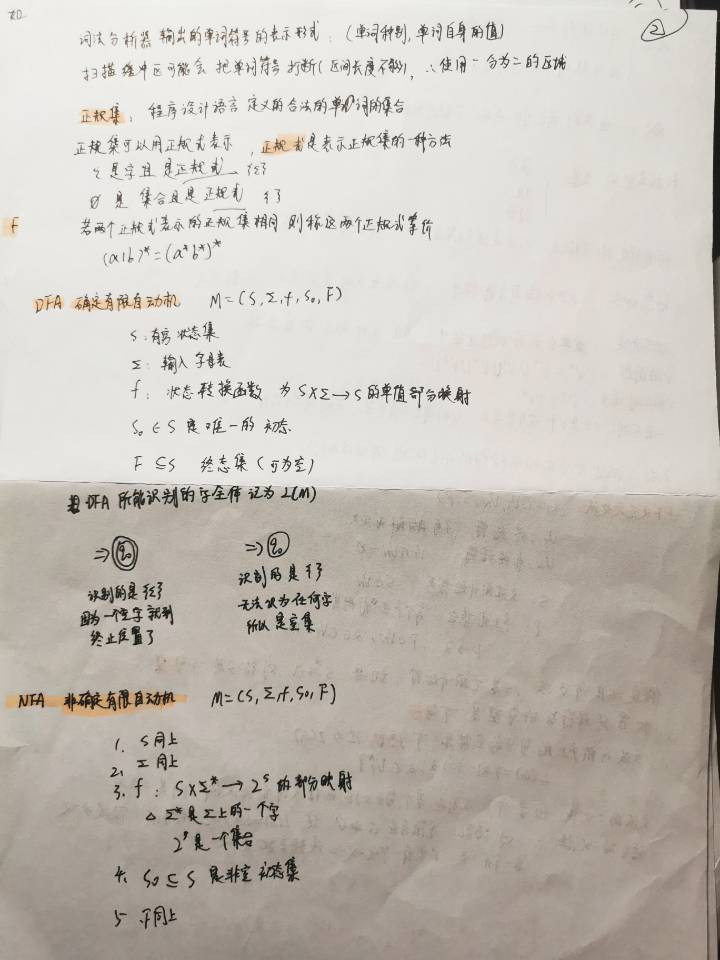 ②
词法分析器 输出的单词符号的表示形式：(单词种别,单词自身的值)
扫描缓冲区可能会 把单词符号打断(区间长度不够), ∴使用一分为二的区域
正规集： 程序设计语言 定义的合法的单词的集合
正规集可以用正规式表示 , 正规式是表示正规集的一种方法
ε 是字且是正规式 {ε}
∅ 是 集合且是正规式 { }
若两个正规式表示的正规集相同 则称这两个正规式等价
(a|b)* = (a*b*)*
DFA 确定有限自动机 M=(S,Σ,f,S₀,F)
S：有穷状态集
Σ：输入字母表
f：状态转换函数 为 S×Σ→S的单值部分映射
S₀∈S 是唯一的初态
F⊆S 终态集(可为空)
DFA 所能识别的字全体 记为L(M)
⇒ q₀ ⇒ q₀
识别的是{ε} 识别的是{ }
因为一个空字 就到 无法认为任何字
终止位置了 所以是空集
NFA 非确定有限自动机 M=(S,Σ,f,S₀,F)
1. S同上
2. Σ同上
3. f：S×Σ*→2ˢ 的部分映射
△ Σ*是Σ上的一个字
2ˢ是一个集合
4. S₀⊆S 是非空初态集
5 F同上